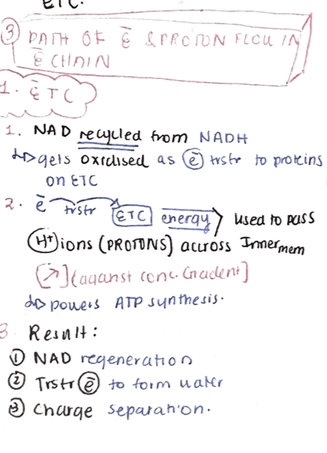 ETC.
③ PATH OF ē & PROTON FLOW IN
ē CHAIN
1. ē TC
1. NAD recycled from NADH
↳ gets oxidised as ē trstr to proteins
on ETC
2. ē trstr ETC energy used to pass
H⁺ ions (PROTONS) across Inner mem
[↗] (against conc. Gradent]
↳ powers ATP synthesis.
3. Result:
① NAD regeneration
② Trstr ē to form water
③ Charge separation.